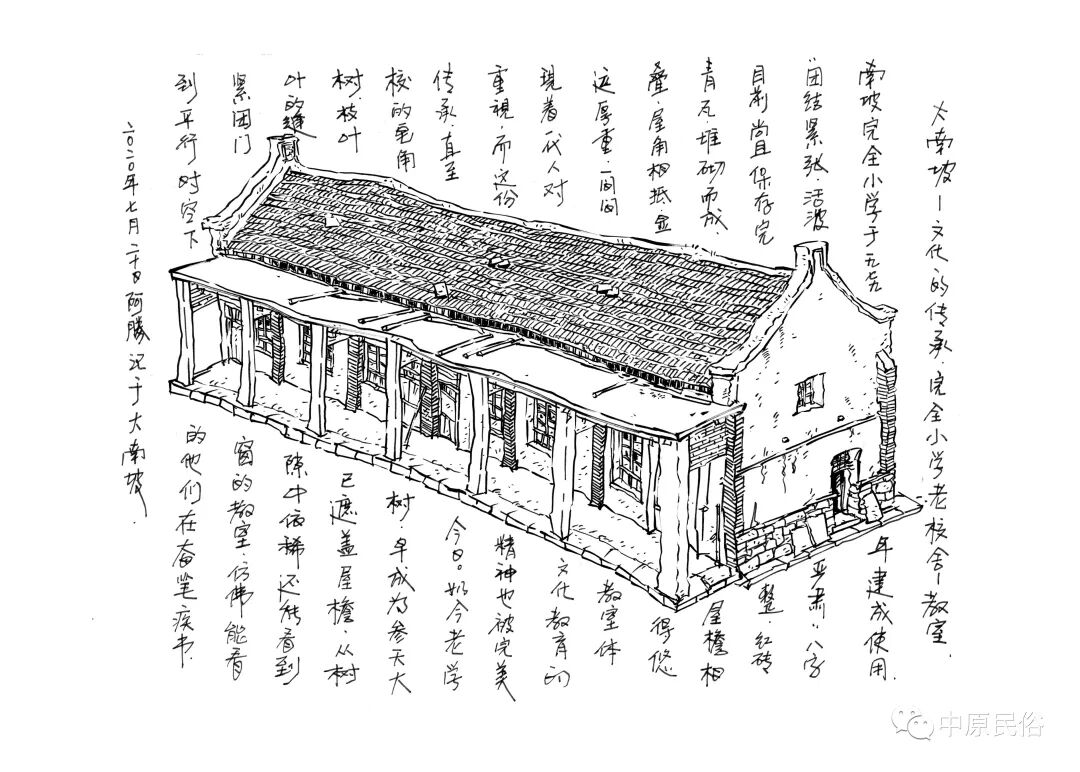 大南坡-文化的传承 完全小学老校舍-教室.
南坡完全小学于 年建成使用.
"团结紧张·活泼严肃"八字
目前尚且保存完整·红砖
青瓦·堆砌而成·屋檐相
叠·屋角相抵 得悠
远厚重·一间间教室体
现着一代人对文化教育的
重视·而这份精神也被完美
传承·直至今日。如今老学
校的 角树·早成为参天大
树·枝叶已遮盖屋檐·从树
叶的缝隙中依稀还能看到
紧闭门窗的教室·仿佛能看
到平行时空下的他们在奋笔疾书·
二〇二〇年七月二十日阿腾记于大南坡.
中原民俗